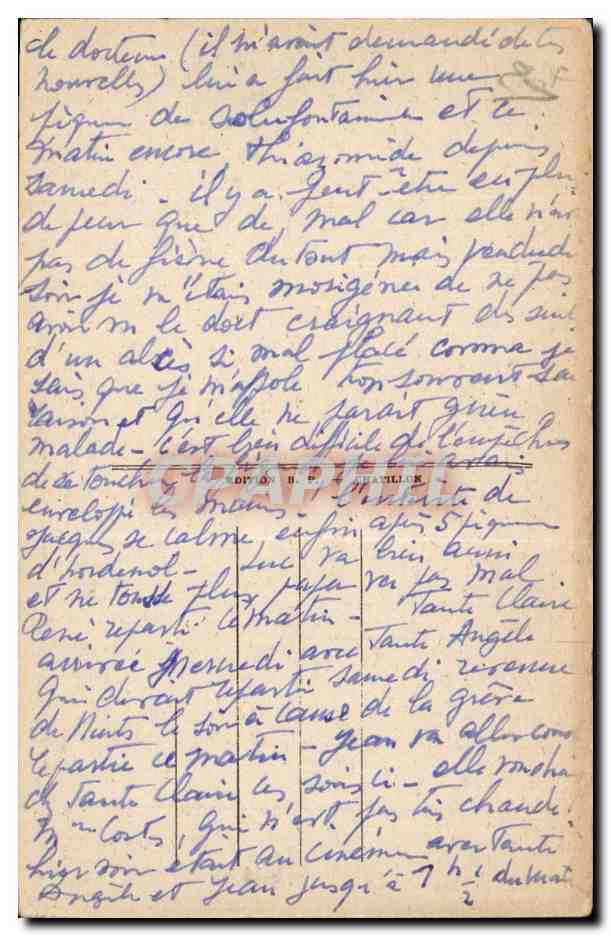 le docteur (il m'avait demandé de tes
nouvelles) lui a fait hier une
piqure de solufontamide et ce
matin encore, thiazomide depuis
samedi - il y a peut-être eu plus
de peur que de mal car elle n'a
pas de fièvre du tout mais vendredi
soir je m'étais morigénée de ne pas
avoir vu le doct craignant des suites
d'un abcès si mal placé comme je
sais que je m'affole non souvent sa
raison et qu'elle ne parait guère
malade - C'est bien difficile de l'empêcher
de se toucher
EDITION B. R. CHATILLON
enveloppé les mains - de
Jacques se calme enfin après 5 piqures
d'hordenol - Luc va bien aussi
et ne tousse plus, papa va pas mal
René reparti ce matin - Tante Claire
arrivée Mercredi avec Tante Angèle
qui devait repartir samedi revenue
de Niort le soir à cause de la grève
repartie ce matin - Jean va aller
ch Tante Claire ces soirs ci - elle voudrait
Mme Costes, qui n'est pas très chaude.
hier soir était au cinéma avec Tante
Angèle et Jean jusqu'à 1 h ½ du mat
CPAPHIL